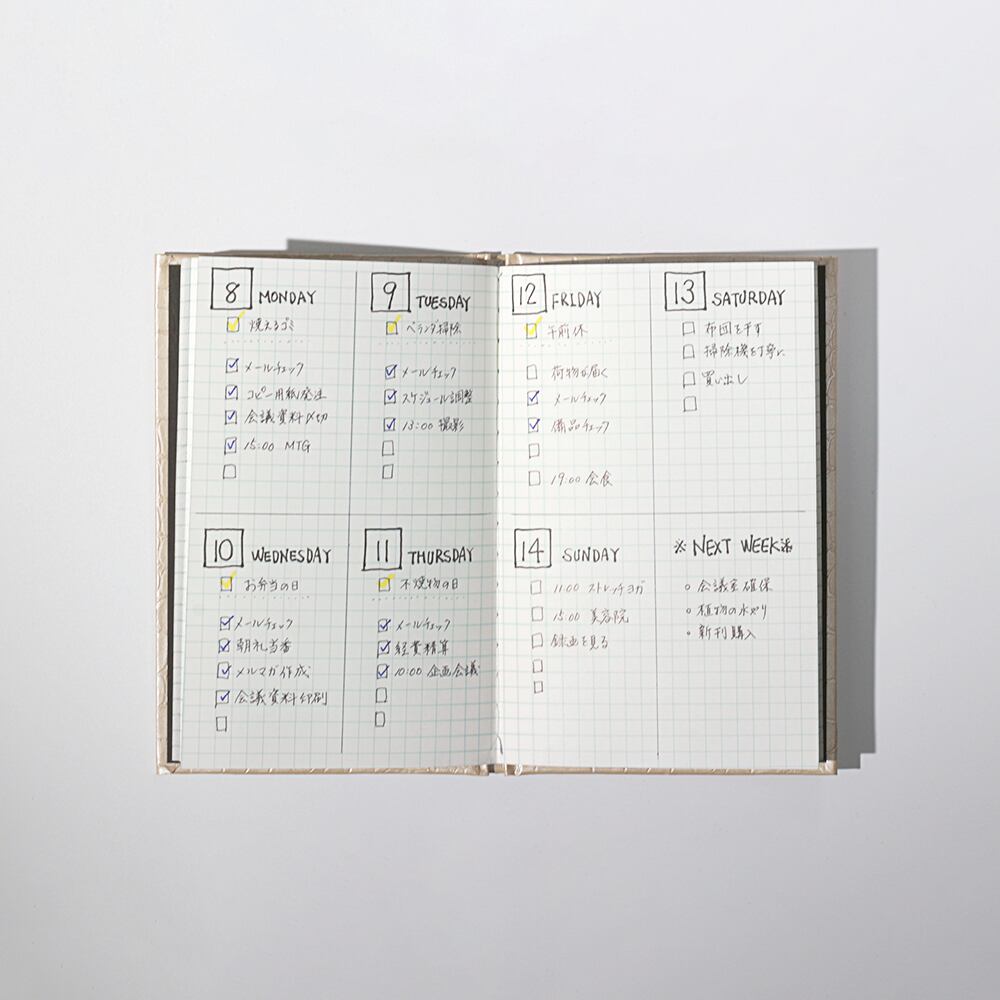 8 MONDAY
燃えるゴミ
メールチェック
コピー用紙発注
会議資料〆切
15:00 MTG
9 TUESDAY
ベランダ掃除
メールチェック
スケジュール調整
13:00 撮影
10 WEDNESDAY
お弁当の日
メールチェック
朝礼当番
メルマガ作成
会議資料印刷
11 THURSDAY
不燃物の日
メールチェック
経費精算
10:00 企画会議
12 FRIDAY
午前休
荷物が届く
メールチェック
備品チェック
19:00 会食
13 SATURDAY
布団を干す
掃除機を丁寧に
買い出し
14 SUNDAY
11:00 ストレッチヨガ
15:00 美容院
録画を見る
※ NEXT WEEK ※
会議室確保
植物の水やり
新刊購入